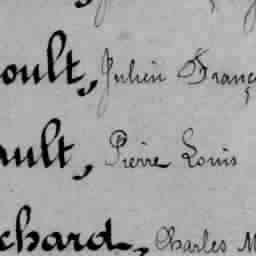 oult, Julien Franç
ault, Pierre Louis
chard, Charles M